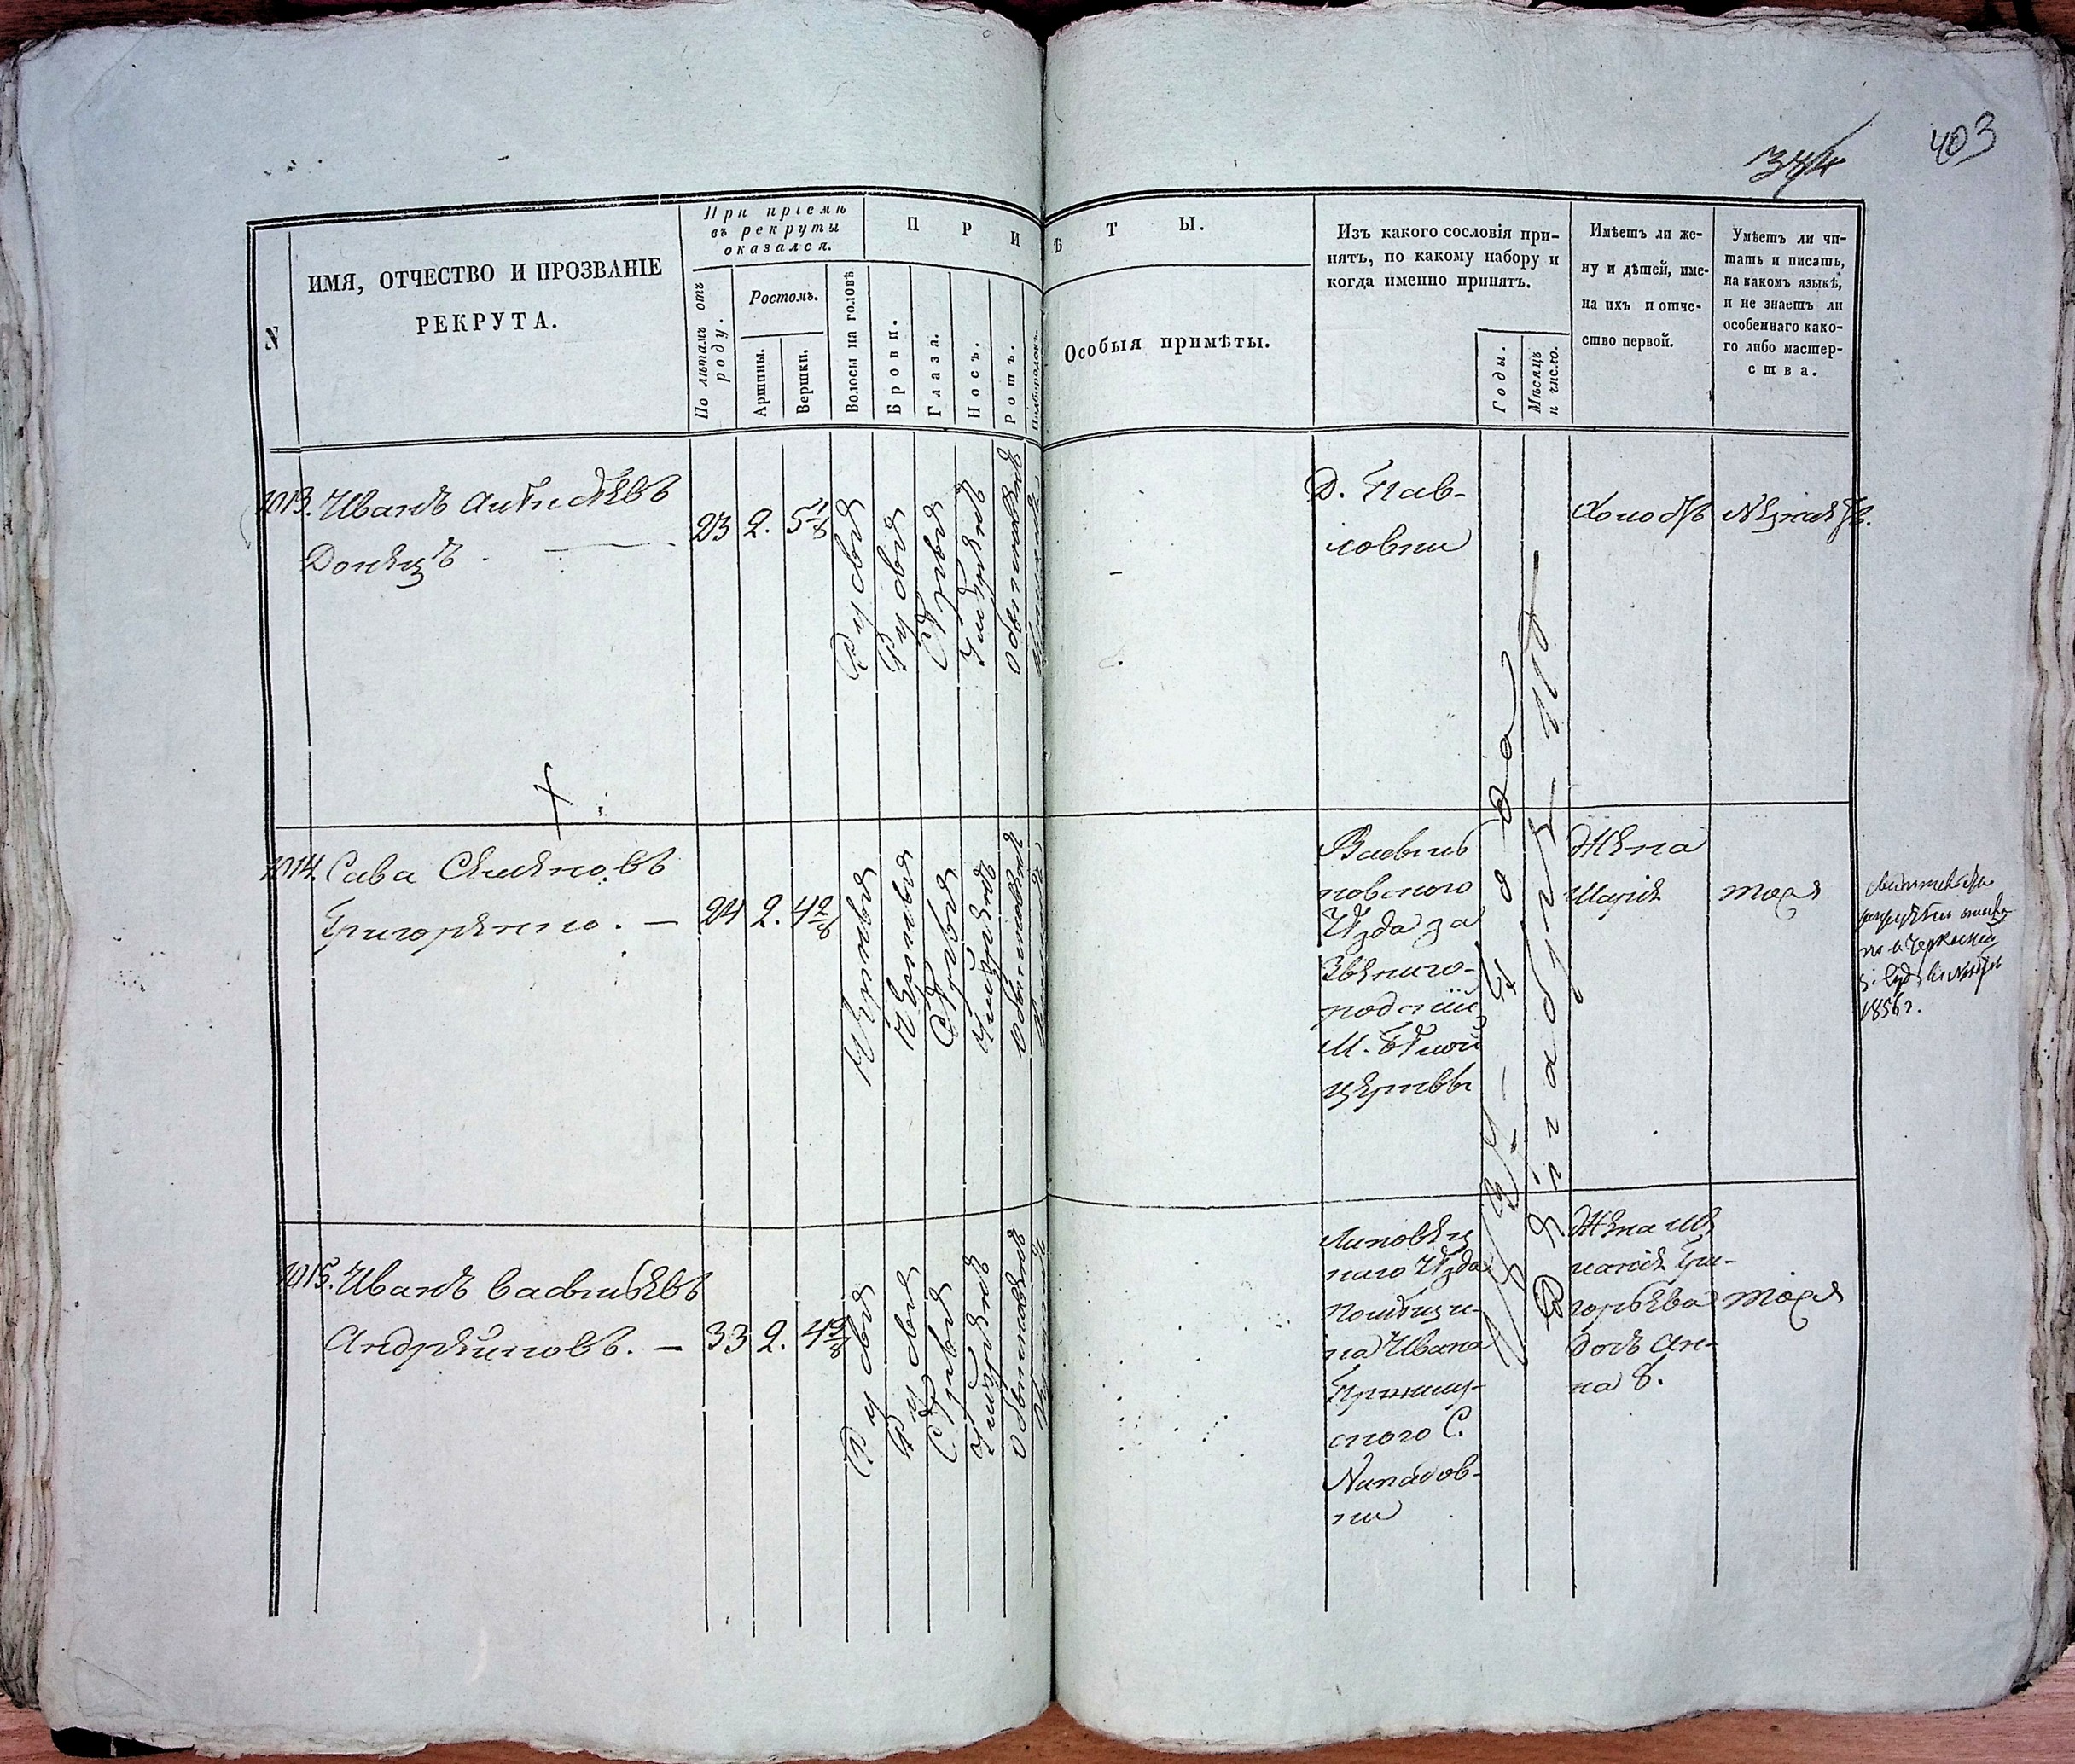 403
344
N
ИМЯ, ОТЧЕСТВО И ПРОЗВАНІЕ
РЕКРУТА.
При пріемѣ
въ рекруты
оказался.
По лѣтамъ отъ
роду.
Ростомъ.
Аршины.
Вершки.
П Р И
Ѣ Т Ы.
Волосы на головѣ
Брови.
Глаза.
Носъ.
Ротъ.
Подбородокъ.
Особыя примѣты.
Изъ какого сословія при-
нятъ, по какому набору и
когда именно принятъ.
Годы.
Мѣсяцъ
и число.
Имѣетъ ли же-
ну и дѣтей, име-
на ихъ и отче-
ство первой.
Умѣетъ ли чи-
тать и писать,
на какомъ языкѣ,
и не знаетъ ли
особеннаго како-
го либо мастер-
ства.
1013. Иванъ
Донецъ
23 2. 5 1/8
Русыя
Русыя
Сѣрыя
Умѣренъ
обыкновенъ
Д. Пав-
ловки
Холостъ
Неумѣетъ.
1014. Сава Семеновъ
Григоренко. — 24 2. 4 2/8
Черныя
Черныя
Сѣрыя
Умѣренъ
обыкновенъ
Василь
ковского
Уѣзда за
Звениго-
родскій
М. Бѣлой
церкви
Жена
Марія
тоже
1856 г.
1015. Иванъ Васильевъ
Андрейковъ. — 33 2. 4 3/8
Русыя
Русыя
Сѣрыя
Умѣренъ
обыкновенъ
Липовец
кого Уѣзда
Помѣщи-
ка Ивана
ского С.
Жена Ме
ланія Гри-
горьева
дочь Ан-
на 8.
тоже
года
Февраля